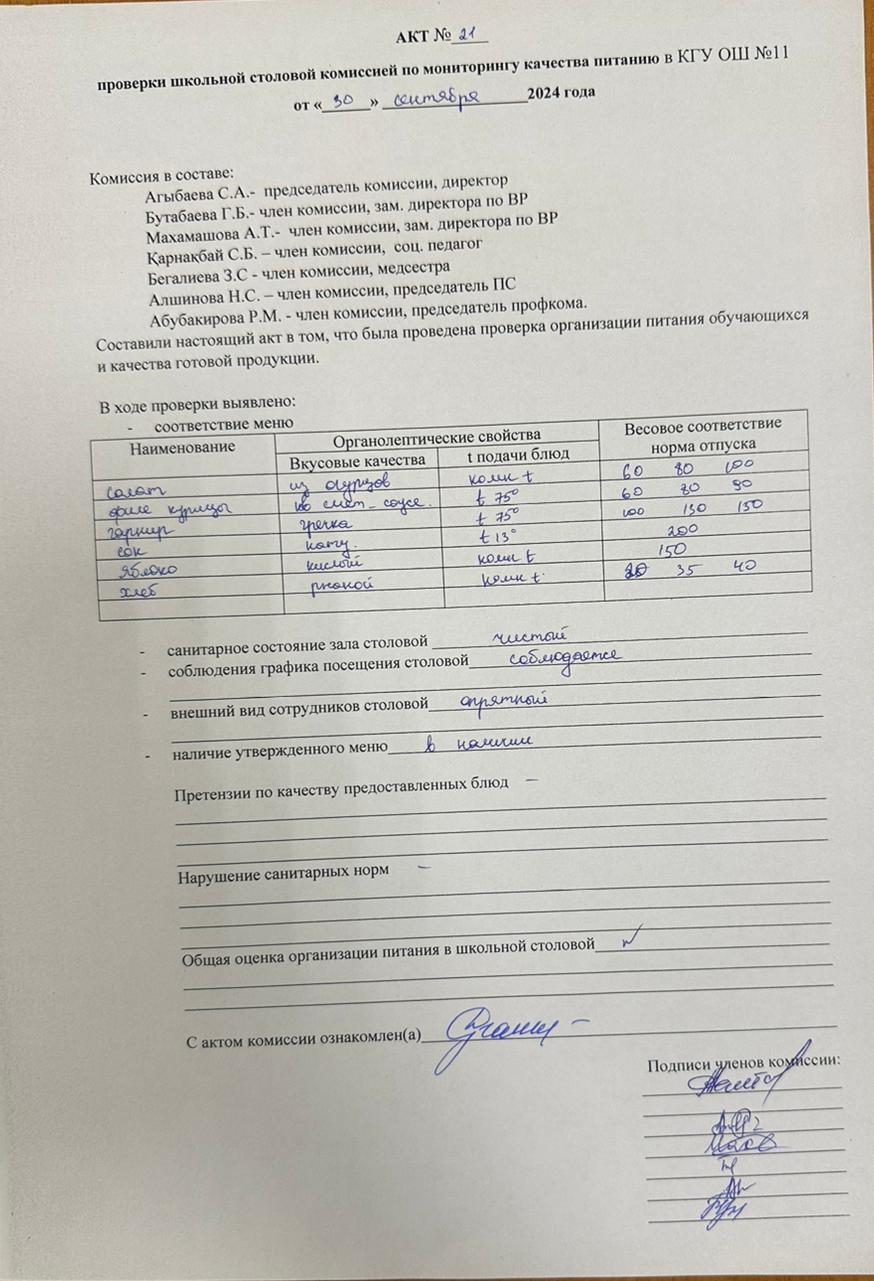 АКТ № 21
проверки школьной столовой комиссией по мониторингу качества питанию в КГУ ОШ №11
от « 30 » сентября 2024 года
Комиссия в составе:
Агыбаева С.А.- председатель комиссии, директор
Бутабаева Г.Б.- член комиссии, зам. директора по ВР
Махамашова А.Т.- член комиссии, зам. директора по ВР
Қарнақбай С.Б. – член комиссии, соц. педагог
Бегалиева З.С - член комиссии, медсестра
Алшинова Н.С. – член комиссии, председатель ПС
Абубакирова Р.М. - член комиссии, председатель профкома.
Составили настоящий акт в том, что была проведена проверка организации питания обучающихся
и качества готовой продукции.
В ходе проверки выявлено:
- соответствие меню
Наименование Органолептические свойства Весовое соответствие норма отпуска
Вкусовые качества t подачи блюд
салат из огурцов комн t 60 80 100
филе курицы в смет. соусе. t 75° 60 80 90
гарнир гречка t 75° 100 130 150
сок нату. t 13° 200
яблоко кислый комн t 150
хлеб ржаной комн t. 35 40
- санитарное состояние зала столовой чистый
- соблюдения графика посещения столовой соблюдается
- внешний вид сотрудников столовой опрятный
- наличие утвержденного меню в наличии
Претензии по качеству предоставленных блюд –
Нарушение санитарных норм –
Общая оценка организации питания в школьной столовой
С актом комиссии ознакомлен(а)
Подписи членов комиссии: